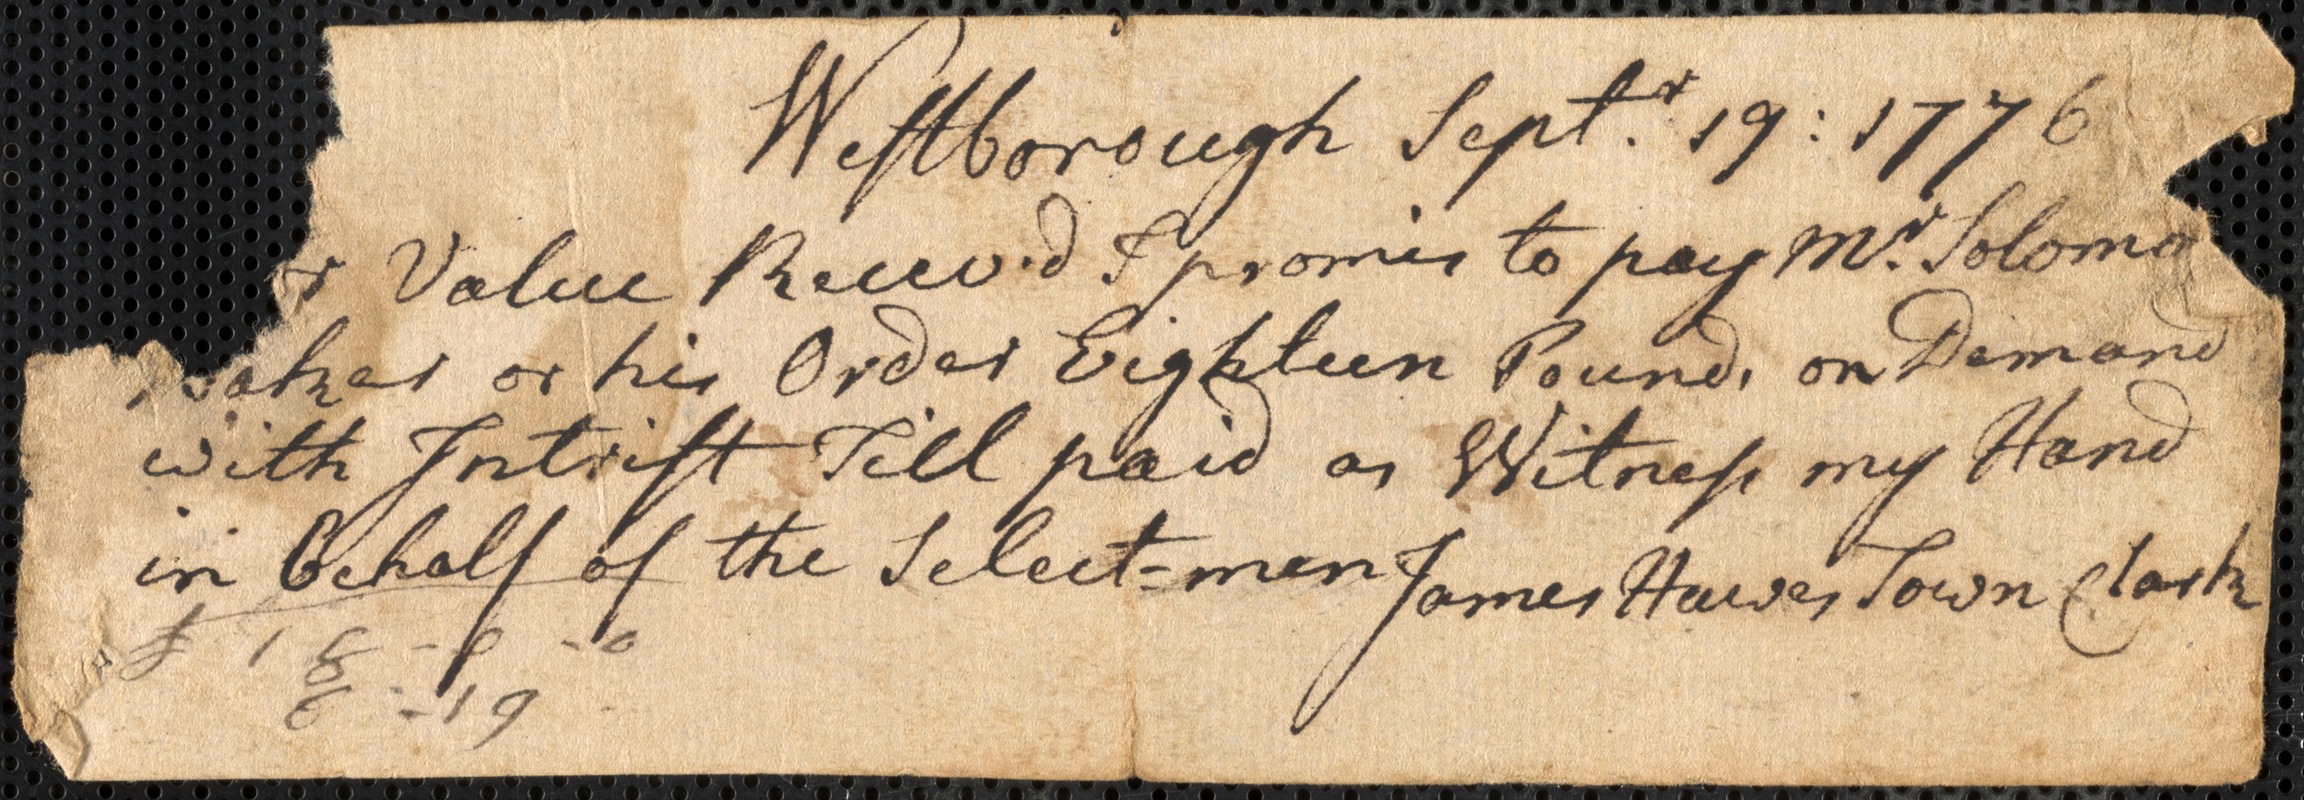 Westborough Sept.r 19: 1776
r Value Receiv.d I promis to pay Mr. Solomo
Baker or his Order Eighteen Pound, on Demand
with Intrist Till paid as Witness my Hand
in Behalf of the Select=men James Hawes Town Clark
£ 18 - 0 - 0
6 - 19